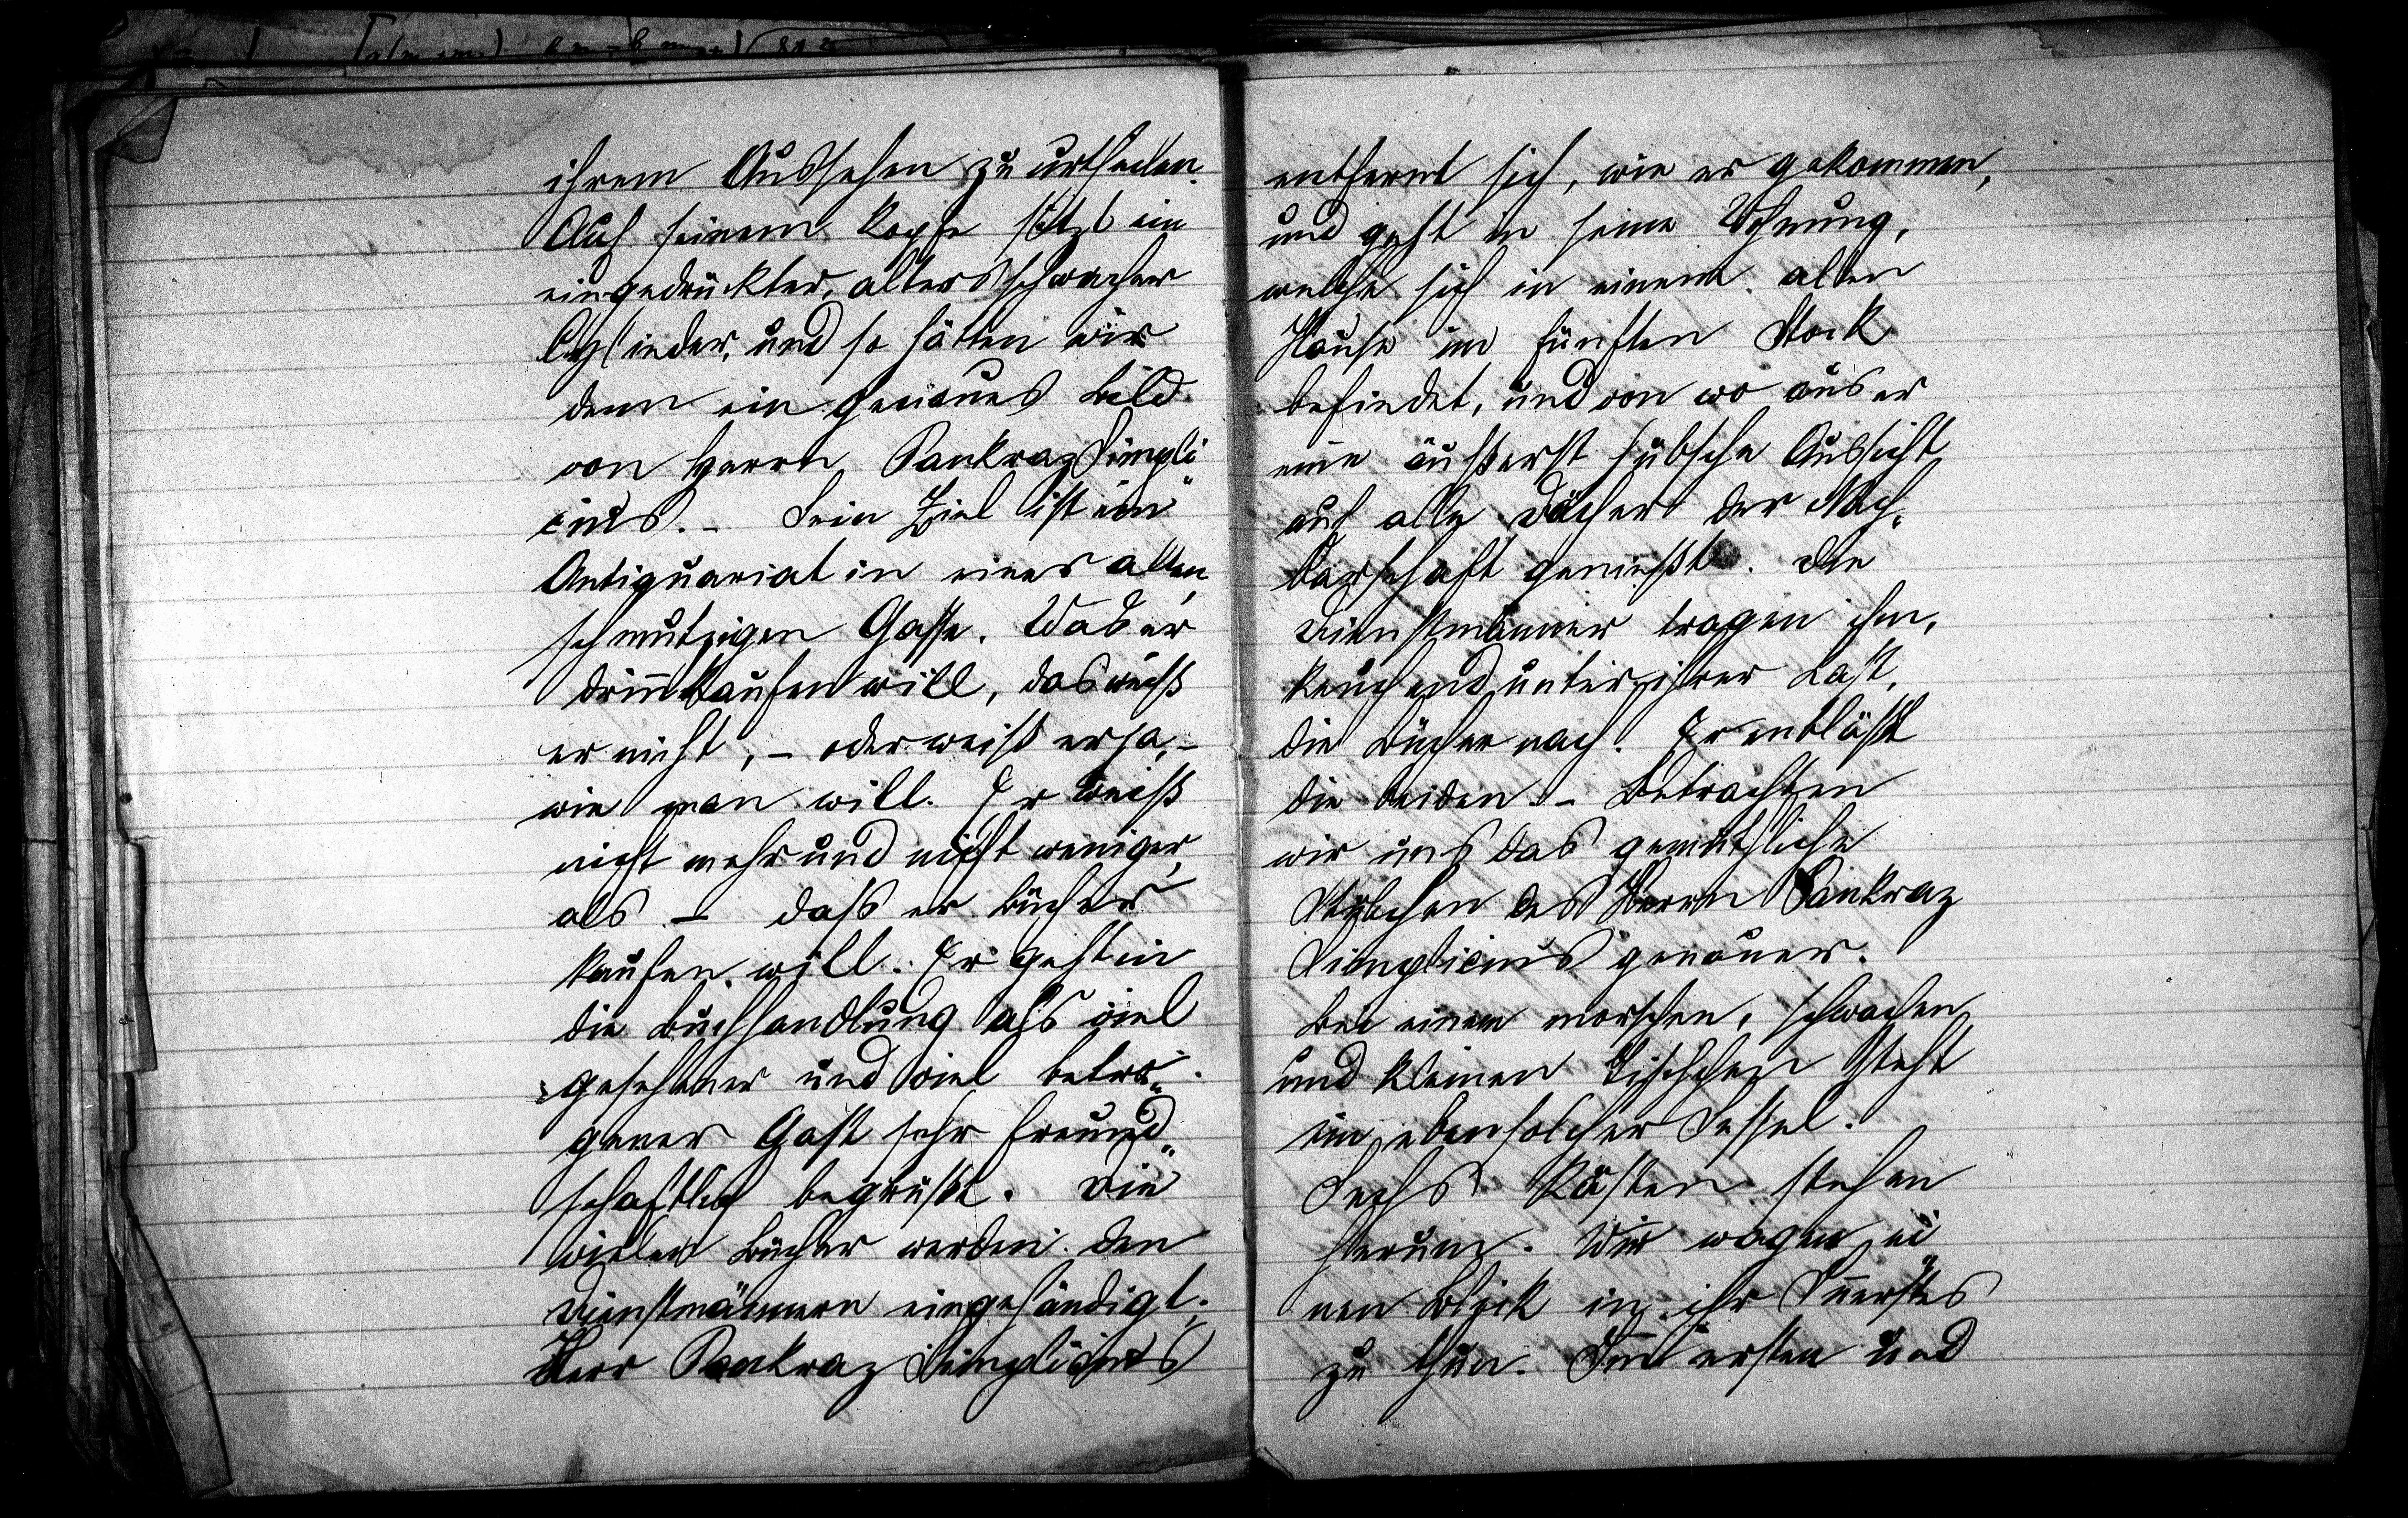 ihrem Aussehen zu urtheilen.
Auf seinem Kopfe sitzt ein
eingedrückter, altersschwacher
Cylinder, und so hätten wir
denn ein genaues Bild
von Herrn Pankraz Simpli
cius. – Sein Ziel ist ein
Antiquariat in einer alten,
schmutzigen Gasse. Was er
drin̅ kaufen will, das weiß
er nicht, – oder weiß er ja, –
wie man will. Er weiß
nicht mehr und nicht weniger,
als – daß er Bücher
kaufen will. Er geht in
die Buchhandlung als viel
gesehener und viel betro„
gener Gast sehr freund„
schaftlich begrüßt. Die
vielen Bücher werden den
Dienstmännern eingehändigt.
Herr Pankraz Simplicius
entfernt sich, wie er gekommen,
und geht in seine Wohnung,
welche sich in einem alten
Hause im fünften Stock
befindet, und von wo aus er
eine äußerst hübsche Aussicht
auf alle Dächer der Nach„
barschaft genießt. Die
Dienstmänner tragen ihm,
keuchend unter ihrer Last,
die Bücher nach. Er entläßt
die beiden. – Betrachten
wir uns das gemüthliche
Stübchen des Herrn Pankraz
Simplicius genauer.
Bei einem morschen, schwachen
und kleinen Tischchen steht
ein ebensolcher Sessel.
Sechs Kästen stehen
herum. Wir wagen ei
nen Blick in ihr In̅erstes
zu thun. Im ersten und